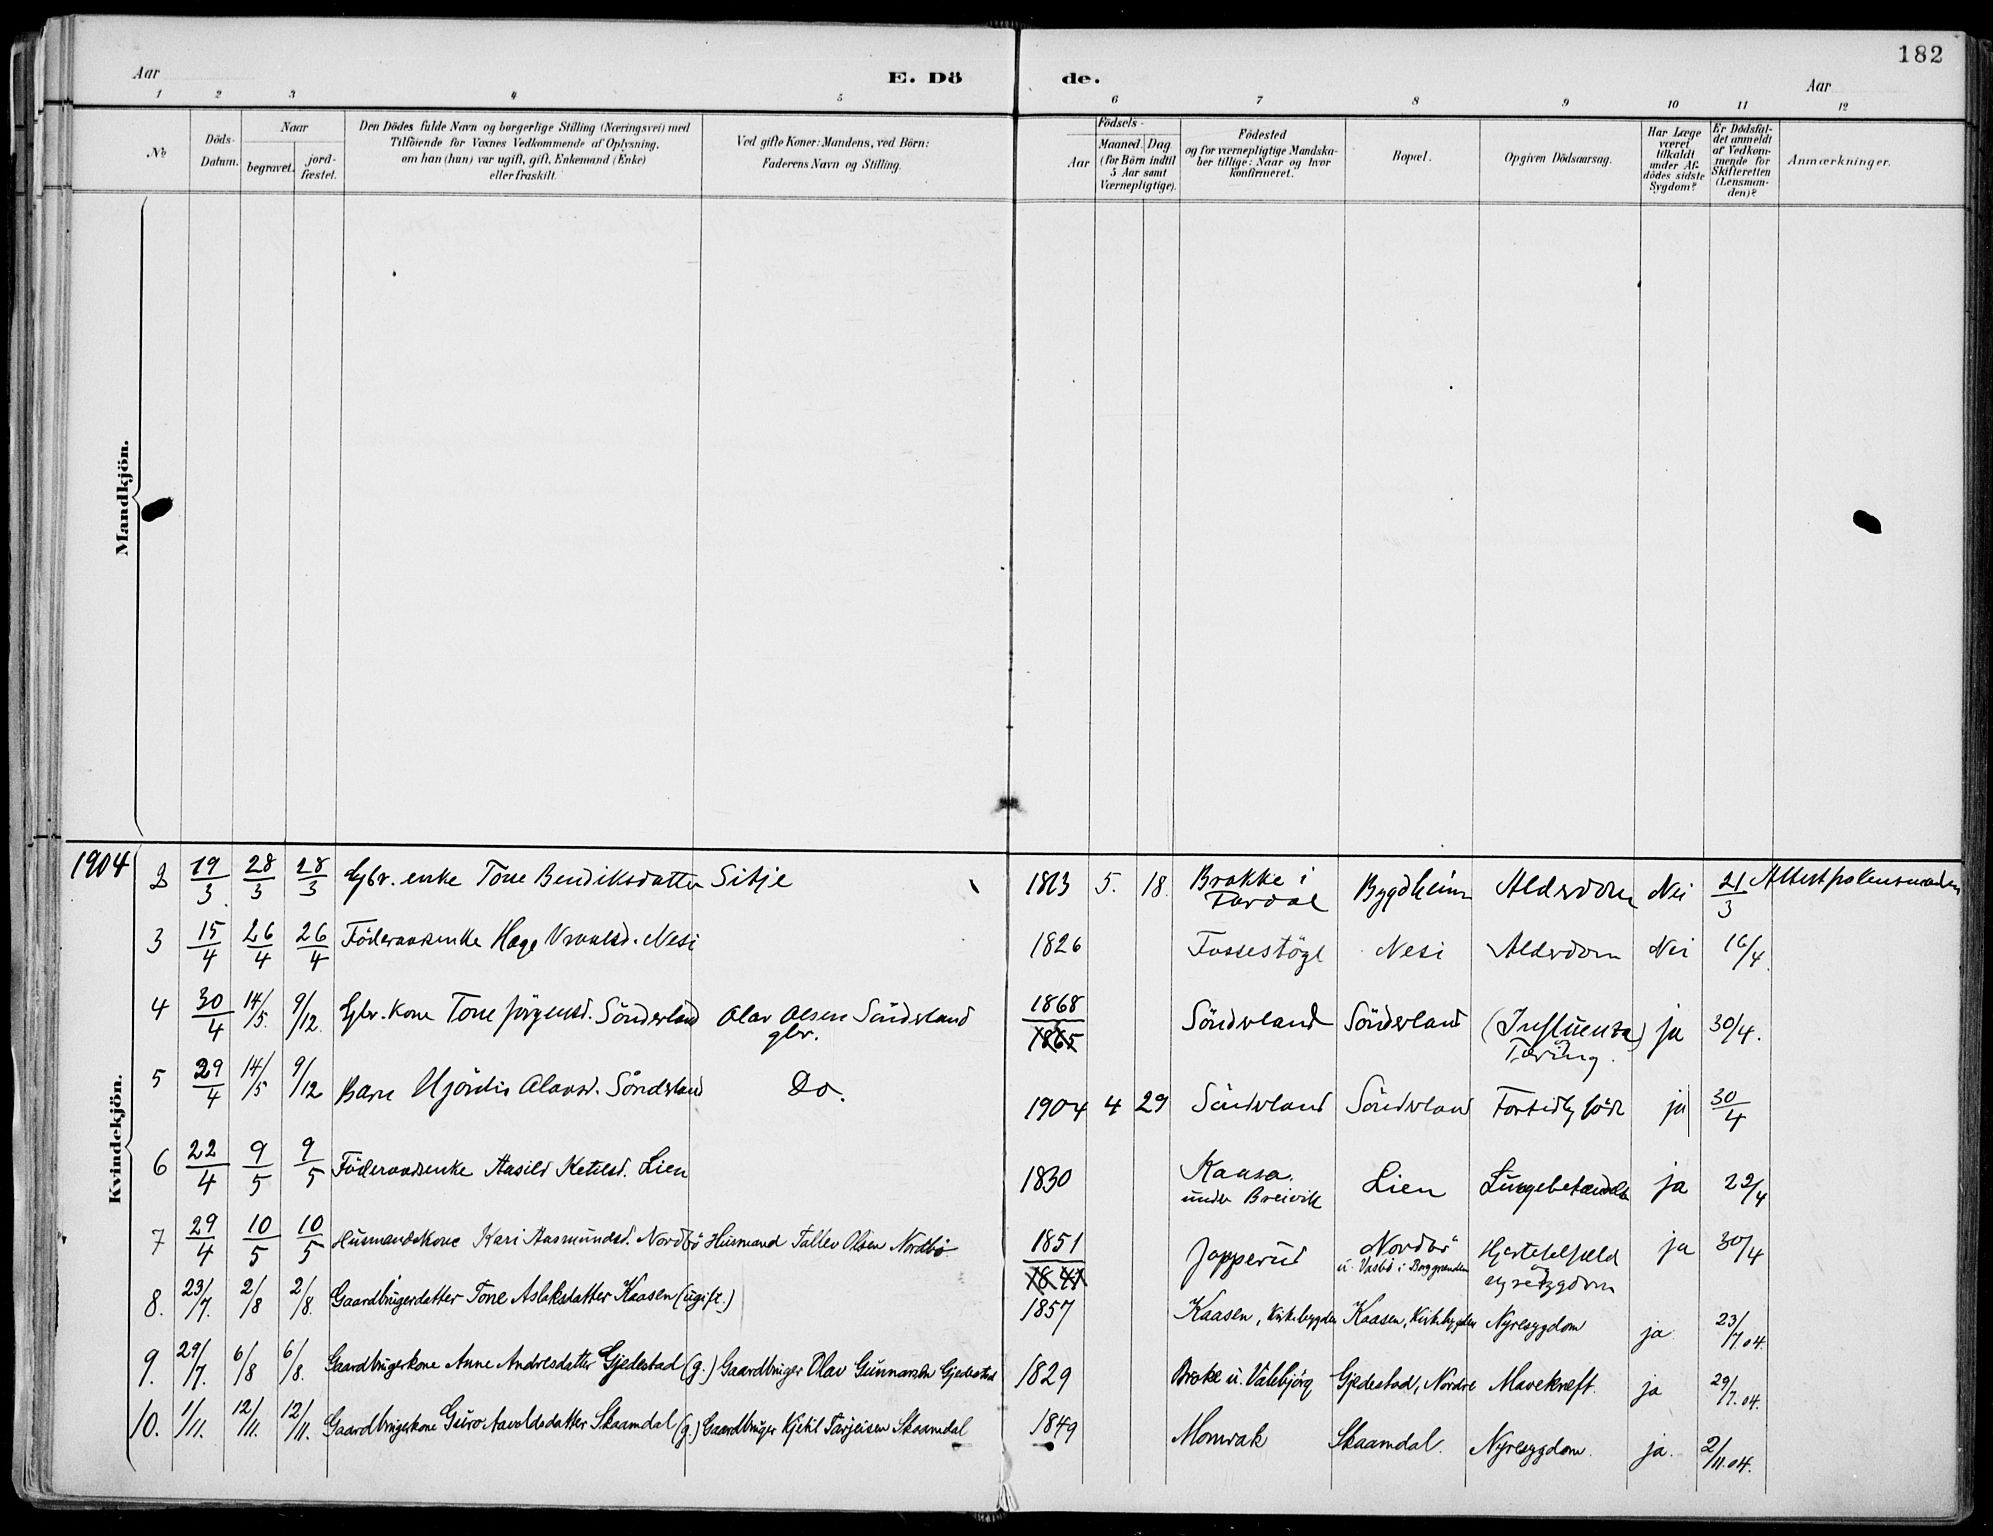 182
Aar
E. Dö de.
Aar
1 2 3 4 5 6 7 8 9 10 11 12
No
Döds-
Datum.
Naar
begravet.
jord-
fæstet.
Den Dödes fulde Navn og borgerlige Stilling (Næringsvei) med
Tilföiende for Voxnes Vedkommende af Oplysning,
om han (hun) var ugift, gift, Enkemand (Enke)
eller fraskilt.
Ved gifte Koner: Mandens, ved Börn:
Faderens Navn og Stilling.
Födsels-
Aar
Maaned. Dag.
(for Börn indtil
5 Aar samt
Værnepligtige).
Födested
og for værnepligtige Mandska-
ber tillige: Naar og hvor
konfirmeret.
Bopæl.
Opgiven Dödsaarsag.
Har Læge
været
tilkaldt
under Af-
dödes sidste
Sygdom?
Er Dödsfal-
det anmeldt
af Vedkom-
mende for
Skifteretten
(Lensman-
den)?
Anmærkninger.
Mandkjön.
Kvindekjön.
1904 2 19/3 28/3 28/3 Gbr. enke Tone Bendiksdatter Sitje 1813 5. 18. Brokke i Bygdheim Alderdom Nei 21/3
3 15/4 26/4 26/4 Föderaadsenke Hæge Vraalsd. Nesi 1826 Nesi Alderdom Nei 16/4.
4 30/4 14/5. 9/12. Gbr. kone Tone Jörgensd. Sönderland Olav Olsen Sönderland 1868 Sönderland Sönderland (Influensa) ja 30/4.
gbr. 1865 Tæring.
5 29/4 14/5 9/12 Barn Hjördis Olavsd. Sönderland Do. 1904 4 29 Sönderland Sönderland Fortidlig född ja 30/4
6 22/4 9/5 9/5 Föderaadsenke Aasild Ketilsd. Lien 1830 Kaasa Lien Lungebetændelse ja 22/4
under Breivik
7 29/4 10/5 10/5 Husmandskone Kari Aasmundsd. Nordbö Husmand Tallev Olsen Nordbö 1851 Jopperud Nordbö Hjertefeil ja 30/4
1841 u. Vasbö i
8. 23/7. 2/8 2/8. Gaardbrugerdatter Tone Aslaksdatter Kaasen (ugift.) 1857 Kaasen, Kirkebygden Kaasen, Kirkebygden Nyresygdom ja. 23/7.04.
9. 29/7. 6/8 6/8. Gaardbrugerkone Anne Andresdatter Gjedestad (g.) Gaardbruger Olav Gunnarsen Gjedestad 1829 Broke u. Valebjörg Gjedestad, Nordre Mavekræft. ja 29/7.04.
10. 1/11. 12/11. 12/11. Gaardbrugerkone Guro Aavoldsdatter Skaamdal (g.) Gaardbruger Kjetil Tarjeisen Skaamdal 1849 Momrak Skaamdal. Nyresygdom. ja. 2/11.04.